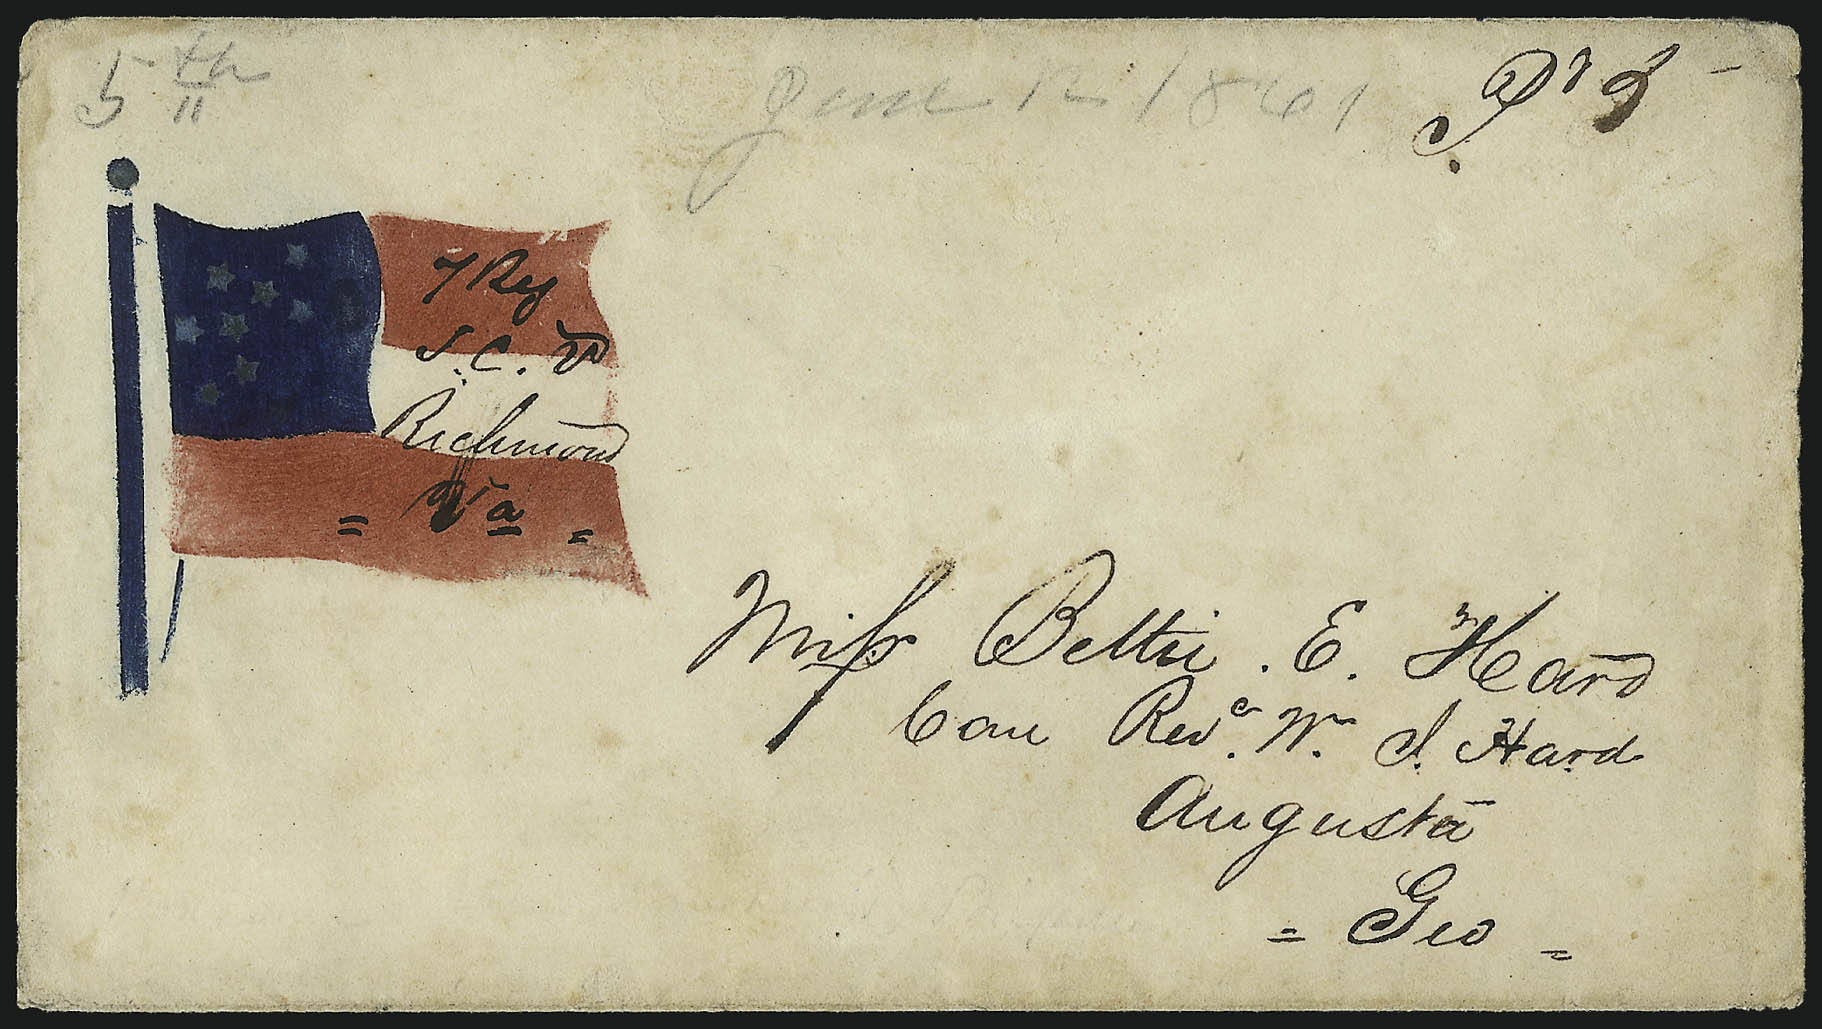 5th
June 12 1861
7 Reg
S. C. V
Richmond
= Va =
Miss Bettie . E. Heard
Care Rev. Wm J. Hard
Augusta
= Geo =